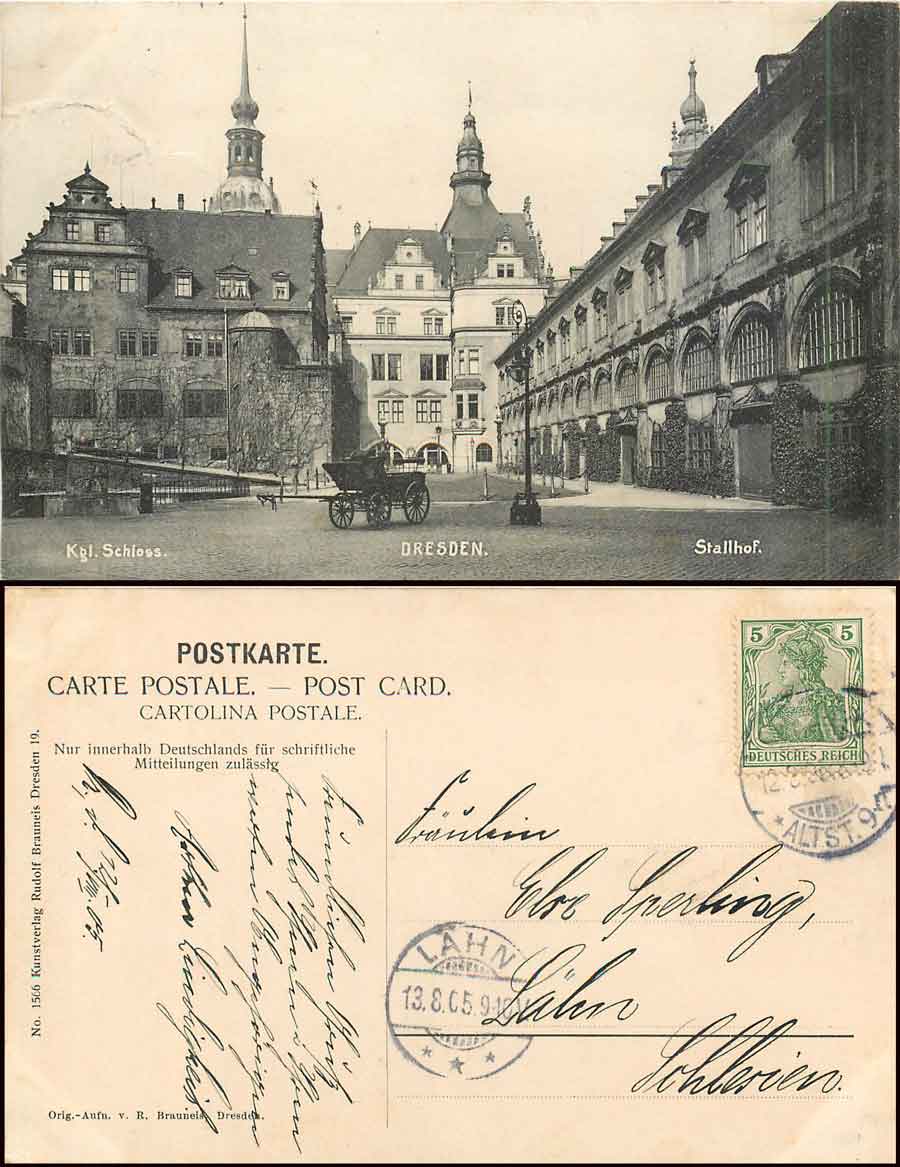 Kgl. Schloss.
DRESDEN.
Stallhof.
POSTKARTE.
CARTE POSTALE. — POST CARD.
CARTOLINA POSTALE.
Nur innerhalb Deutschlands für schriftliche
Mitteilungen zulässig
5 5
DEUTSCHES REICH
* ALTST. 9
Fräulein
Else Sperling,
Lähn
Schlesien.
LÄHN
13.8.05.9-10V
* * *
No. 1566 Kunstverlag Rudolf Brauneis Dresden 19.
Orig.-Aufn. v. R. Brauneis, Dresden.
12/VIII. 05.
Freundlichen Gruß